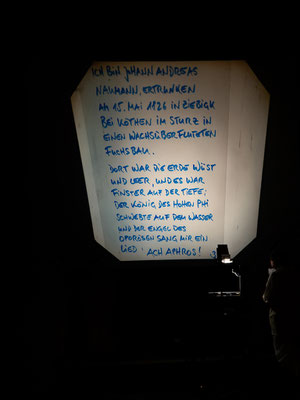 ICH BIN JOHANN ANDREAS
NAUMANN, ERTRUNKEN
AM 15. MAI 1826 IN ZIEBIGK
BEI KÖTHEN IM STURZ IN
EINEN WACHSÜBERFLUTETEN
FUCHSBAU.
DORT WAR DIE ERDE WÜST
UND LEER, UND ES WAR
FINSTER AUF DER TIEFE;
DER KÖNIG DES HOHEN PHI
SCHWEBTE AUF DEM WASSER
UND DER ENGEL DES
OPORÖSEN SANG MIR EIN
LIED: ACH APHROS!